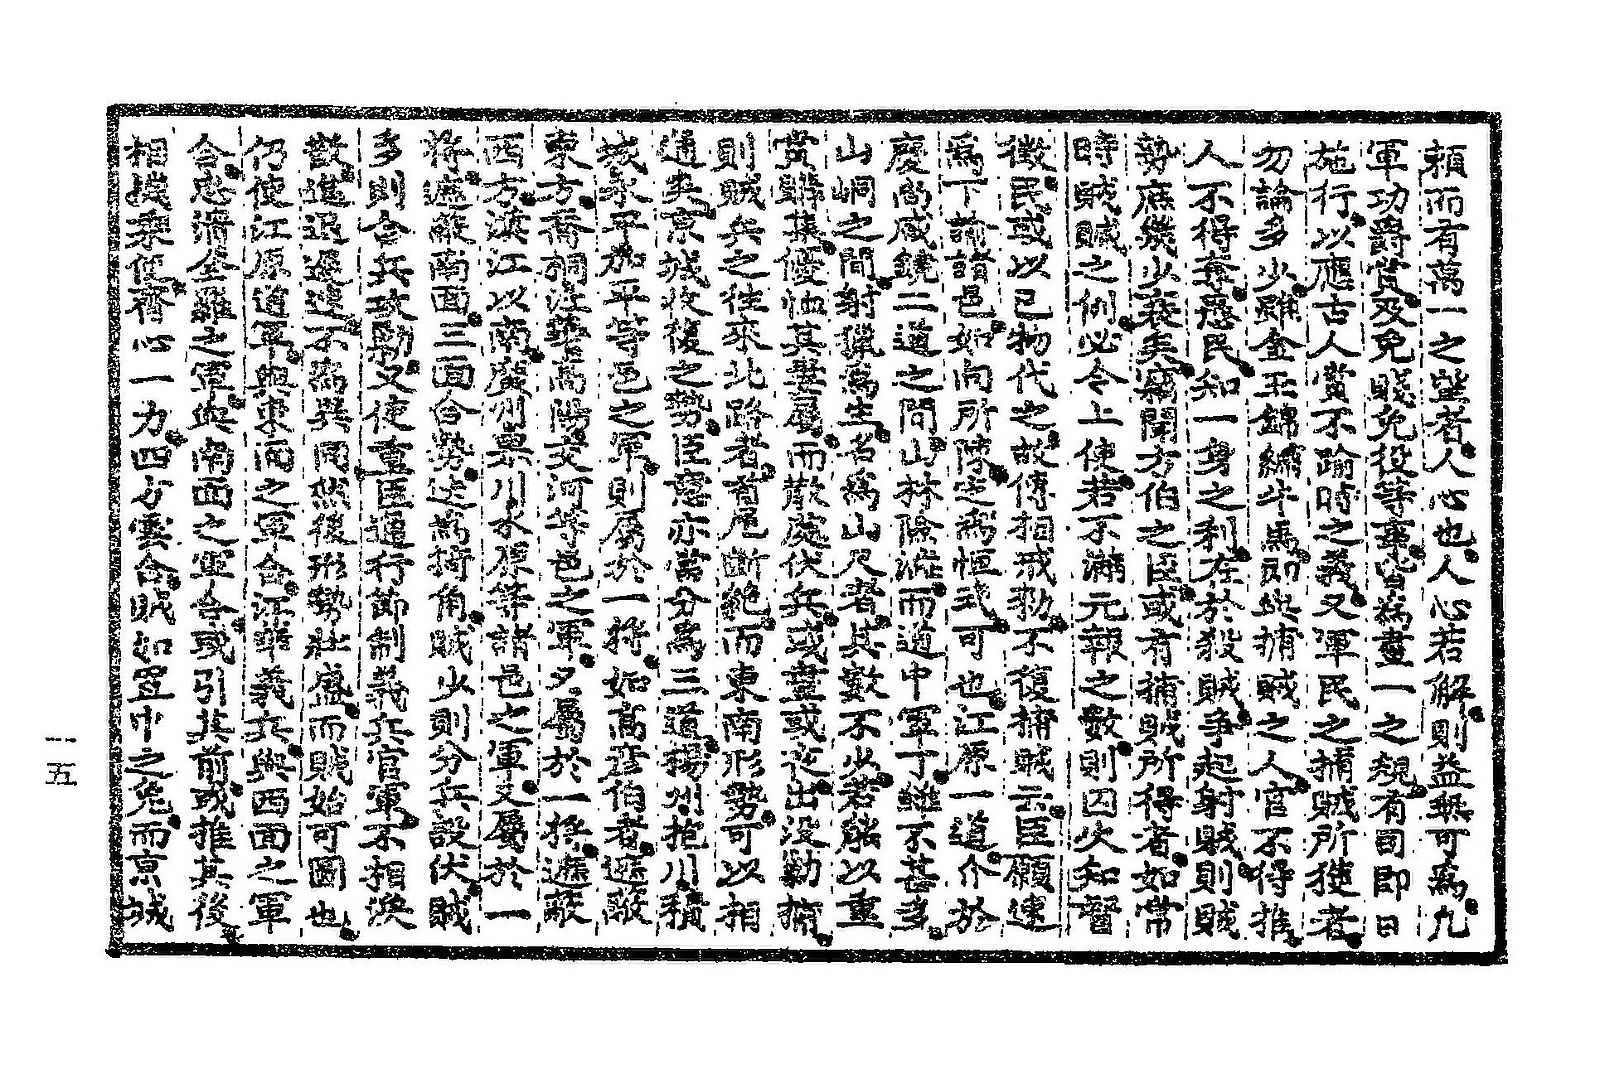 頼而有萬一之望者人心也人心若解則益無可爲凡
軍功爵賞及免賤免役等事皆爲畫一之規有司即日
施行以應古人賞不踰時之義又軍民之捕賊所獲者
勿論多少雖金玉錦繡牛馬即與捕賊之人官不得推
人不得奪愚民知一身之利在於殺賊爭起射賊則賊
勢庶幾少衰矣竊聞方伯之臣或有捕賊所得者如常
時賊贓之例必令上使若不滿元報之數則囚火知督
徵民或以己物代之故傳相戒勑不復捕賊云臣願速
爲下諭諸邑如向所陳定爲恒式可也江原一道介於
慶尚咸鏡二道之間山林險澁而道中軍丁雖不甚多
山峒之間射獵爲生名爲山尺者其數不少若能以重
賞購募優恤其妻屬而散處伏兵或晝或夜出沒勦捕
則賊兵之往來北路者首尾斷絶而東南形勢可以相
通矣京城收復之勢臣意亦當分爲三道楊州抱川積
城永平加平等邑之軍則屬於一將如高彦伯者遮蔽
東方喬桐江華高陽交河等邑之軍又屬於一將遮蔽
西方漢江以南廣州果川水原等諸邑之軍又屬於一
將遮蔽南面三面合勢迭爲掎角賊少則分兵設伏賊
多則合兵攻勦又使重臣通行節制義兵官軍不相渙
散進退遲速不爲異同然後形勢壯盛而賊始可圖也
仍使江原道軍與東面之軍合江華義兵與西面之軍
合忠清全羅之軍與南面之軍合或引其前或推其後
相機乘便齊心一力四方雲合賊如罝中之兔而京城
一五